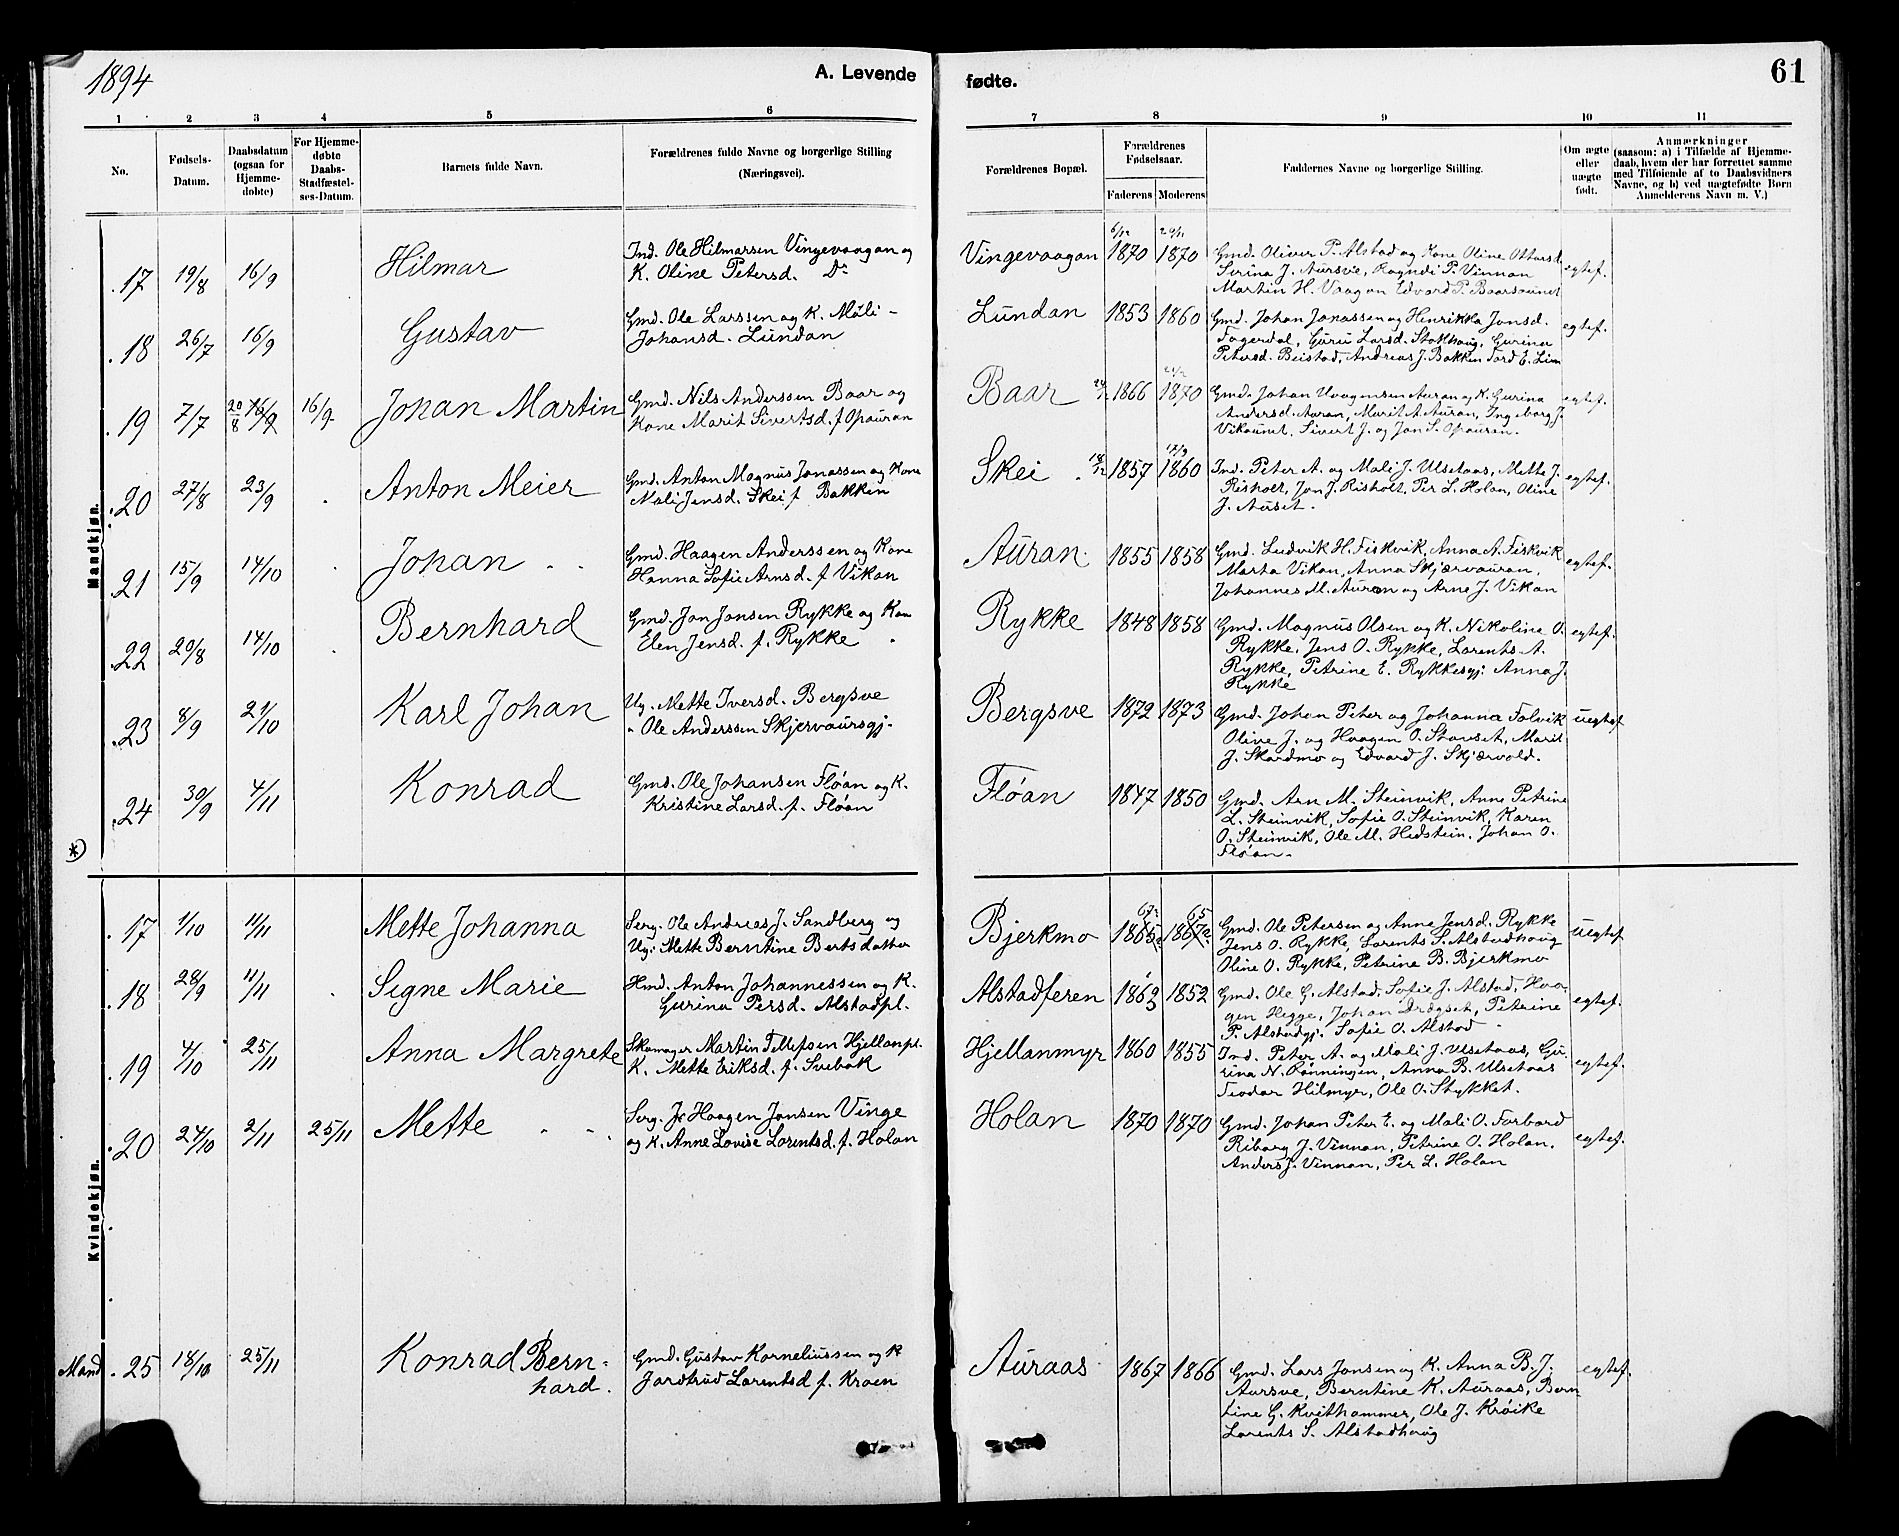 1894
A. Levende fødte.
61
1 2 3 4 5 6 7 8 9 10 11
No.
Fødsels-Datum.
Daabsdatum (ogsaa for Hjemmedøbte)
For Hjemmedøbte Daabs-Stadfæstelses-Datum.
Barnets fulde Navn.
Forældrenes fulde Navne og borgerlige Stilling (Næringsvei).
Forældrenes Bopæl.
Forældrenes Fødselsaar.
Faderens Moderens
Faddernes Navne og borgerlige Stilling.
Om ægte eller uægte født.
Anmærkninger
(saasom: a) i Tilfælde af Hjemmedaab, hvem der har forrettet samme med Tilføiende af to Daabsvidners Navne, og b) ved uægtefødte Børn Anmelderens Navn m. V.)
Mandkjøn.
17 19/8 16/9 Hilmar
Ind. Ole Hilmarsen Vingevaagan og
K. Oline Petersd. Do
Vingevaagan 6/12 1870 1870
Gmd. Oliver P. Alstad og Kone Oline Ottersd.
Serina J. Aursve, Ragndi P. Vinnan
Martin H. Vaagan Edvard P. Baarsaunet
egtef.
18 26/7 16/9 Gustav
Gmd. Ole Larssen og K. Mali
Johansd. Lundan
Lundan 1853 1860
Gmd. Johan Jonassen og Henrikka Jonsd.
Fagerdal, Guru Larsd. Stokhaug, Gurina
Petersd. Beistad, Andreas J. Bakken Tord E. Lien
egtef.
19 7/7 20/8 16/9 16/9 Johan Martin
Gmd. Nils Anderssen Baar og
Kone Marit Sivertsd. f Opauran
Baar 1866 1870
Gmd. Johan Haagensen Auran og K. Gurina
Andersd. Auran, Marit A. Auran, Ingeborg J.
Vikaunet, Sivert J. og Jon S. Opauren.
egtef.
20 27/8 23/9 Anton Meier
Gmd. Anton Magnus Jonassen og Kone
Mali Jensd. Skei f Bakken
Skei 18/12 1857 17/9 1860
Ind. Peter A. og Mali J. Ulsetaas, Mette J.
Risholt, Jon J. Risholt, Per L. Holan, Oline
J. Auset.
egtef.
21 15/9 14/10 Johan
Gmd. Haagen Anderssen og Kone
Hanna Sofie Arnsd. f Vikan
Auran 1855 1858
Gmd. Ludvik H. Fiskvik, Anna A. Fiskvik
Marta Vikan, Anna Skjærvauran,
Johannes M. Auran og Arne J. Vikan
egtef.
22 20/8 14/10 Bernhard
Gmd. Jon Jonsen Rykke og Kone
Elen Jensd. f. Rykke
Rykke 1848 1858
Gmd. Magnus Olsen og K. Nikoline O.
Rykke, Jens O. Rykke, Lorents A.
Rykke, Petrine E. Rykkesgj. Anna J.
Rykke
egtef.
23 8/9 21/10 Karl Johan
Ug. Mette Iversd. Bergsve
" Ole Anderssen Skjervaursgj.
Bergsve 1872 1873
Gmd. Johan Peter og Johanna Folvik
Olive J. og Haagen O. Stauset, Marit
J. Skardmo og Edvard J. Skjærvold.
uegtef
24 30/9 4/11 Konrad
Gmd. Ole Johansen Flöan og K.
Kristine Larsd. f. Flöan
Flöan 1847 1850
Gmd. Arn M. Steinvik, Anne Petrine
L. Steinvik, Sofie O. Steinvik, Karen
O. Steinvik, Ole M. Hedstein, Johan O.
Flöan.
*
Kvindekjøn.
17 1/10 11/11 Mette Johanna
Serg. Ole Andreas J. Sandberg og
Ug: Mette Berntine Bertsdatter
Bjerkmo 67 65
Gmd. Ole Petersen og Anne Jensd. Rykke
Jens O. Rykke, Lorents S. Alstadhaug
Oline O. Rykke, Petrine B. Bjerkmo
uegtef
18 28/9 11/11 Signe Marie
Hmd. Anton Johannessen og K.
Gurina Persd. Alstadpl.
Alstadferen 1852
Gmd. Ole G. Alstad, Sofie J. Alstad, Haagen Hegge, Johan Drögset, Petrine
P. Alstadgj. Sofie O. Alstad
egtef.
19 4/10 25/11 Anna Margrete
Skomager Martin Tellefsen Hjellanpl.
K. Mette Eriksd. f. Svebak
Hjellanmyr 1860 1855
Ind. Peter A. og Mali J. Ulsetaas, Gurina N. Rönningen, Anna B. Ulsetaas
Teodor Hilmyr, Ole O. Stykket.
egtef.
20 24/10 2/11 25/11 Mette
Serg. Jr Haagen Jonsen Vinge
og K. Anne Lovise Lorentsd. f. Holan
Holan 1870 1870
Gmd. Johan Peter E. og Mali O. Forbord
Riborg J. Vinnan, Petrine O. Holan.
Anders J. Vinnan, Per L. Holan
egtef.
Mand. 25 18/10 25/11 Konrad Bernhard.
Gmd. Gustav Korneliussen og K
Jardtrud Lorentsd f. Kroen
Auraas 1867 1866
Gmd. Lars Jonsen og K. Anna B. J.
Aursve, Berntine K. Auraas, Berntine G. Kvithammer, Ole J. Kröike
Lorents S. Alstadhaug
egtef.